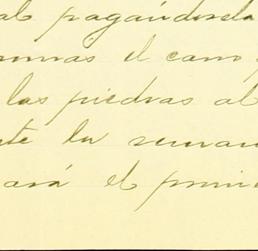 al pagándosela
el carro
las piedras al
te la semana
ará el